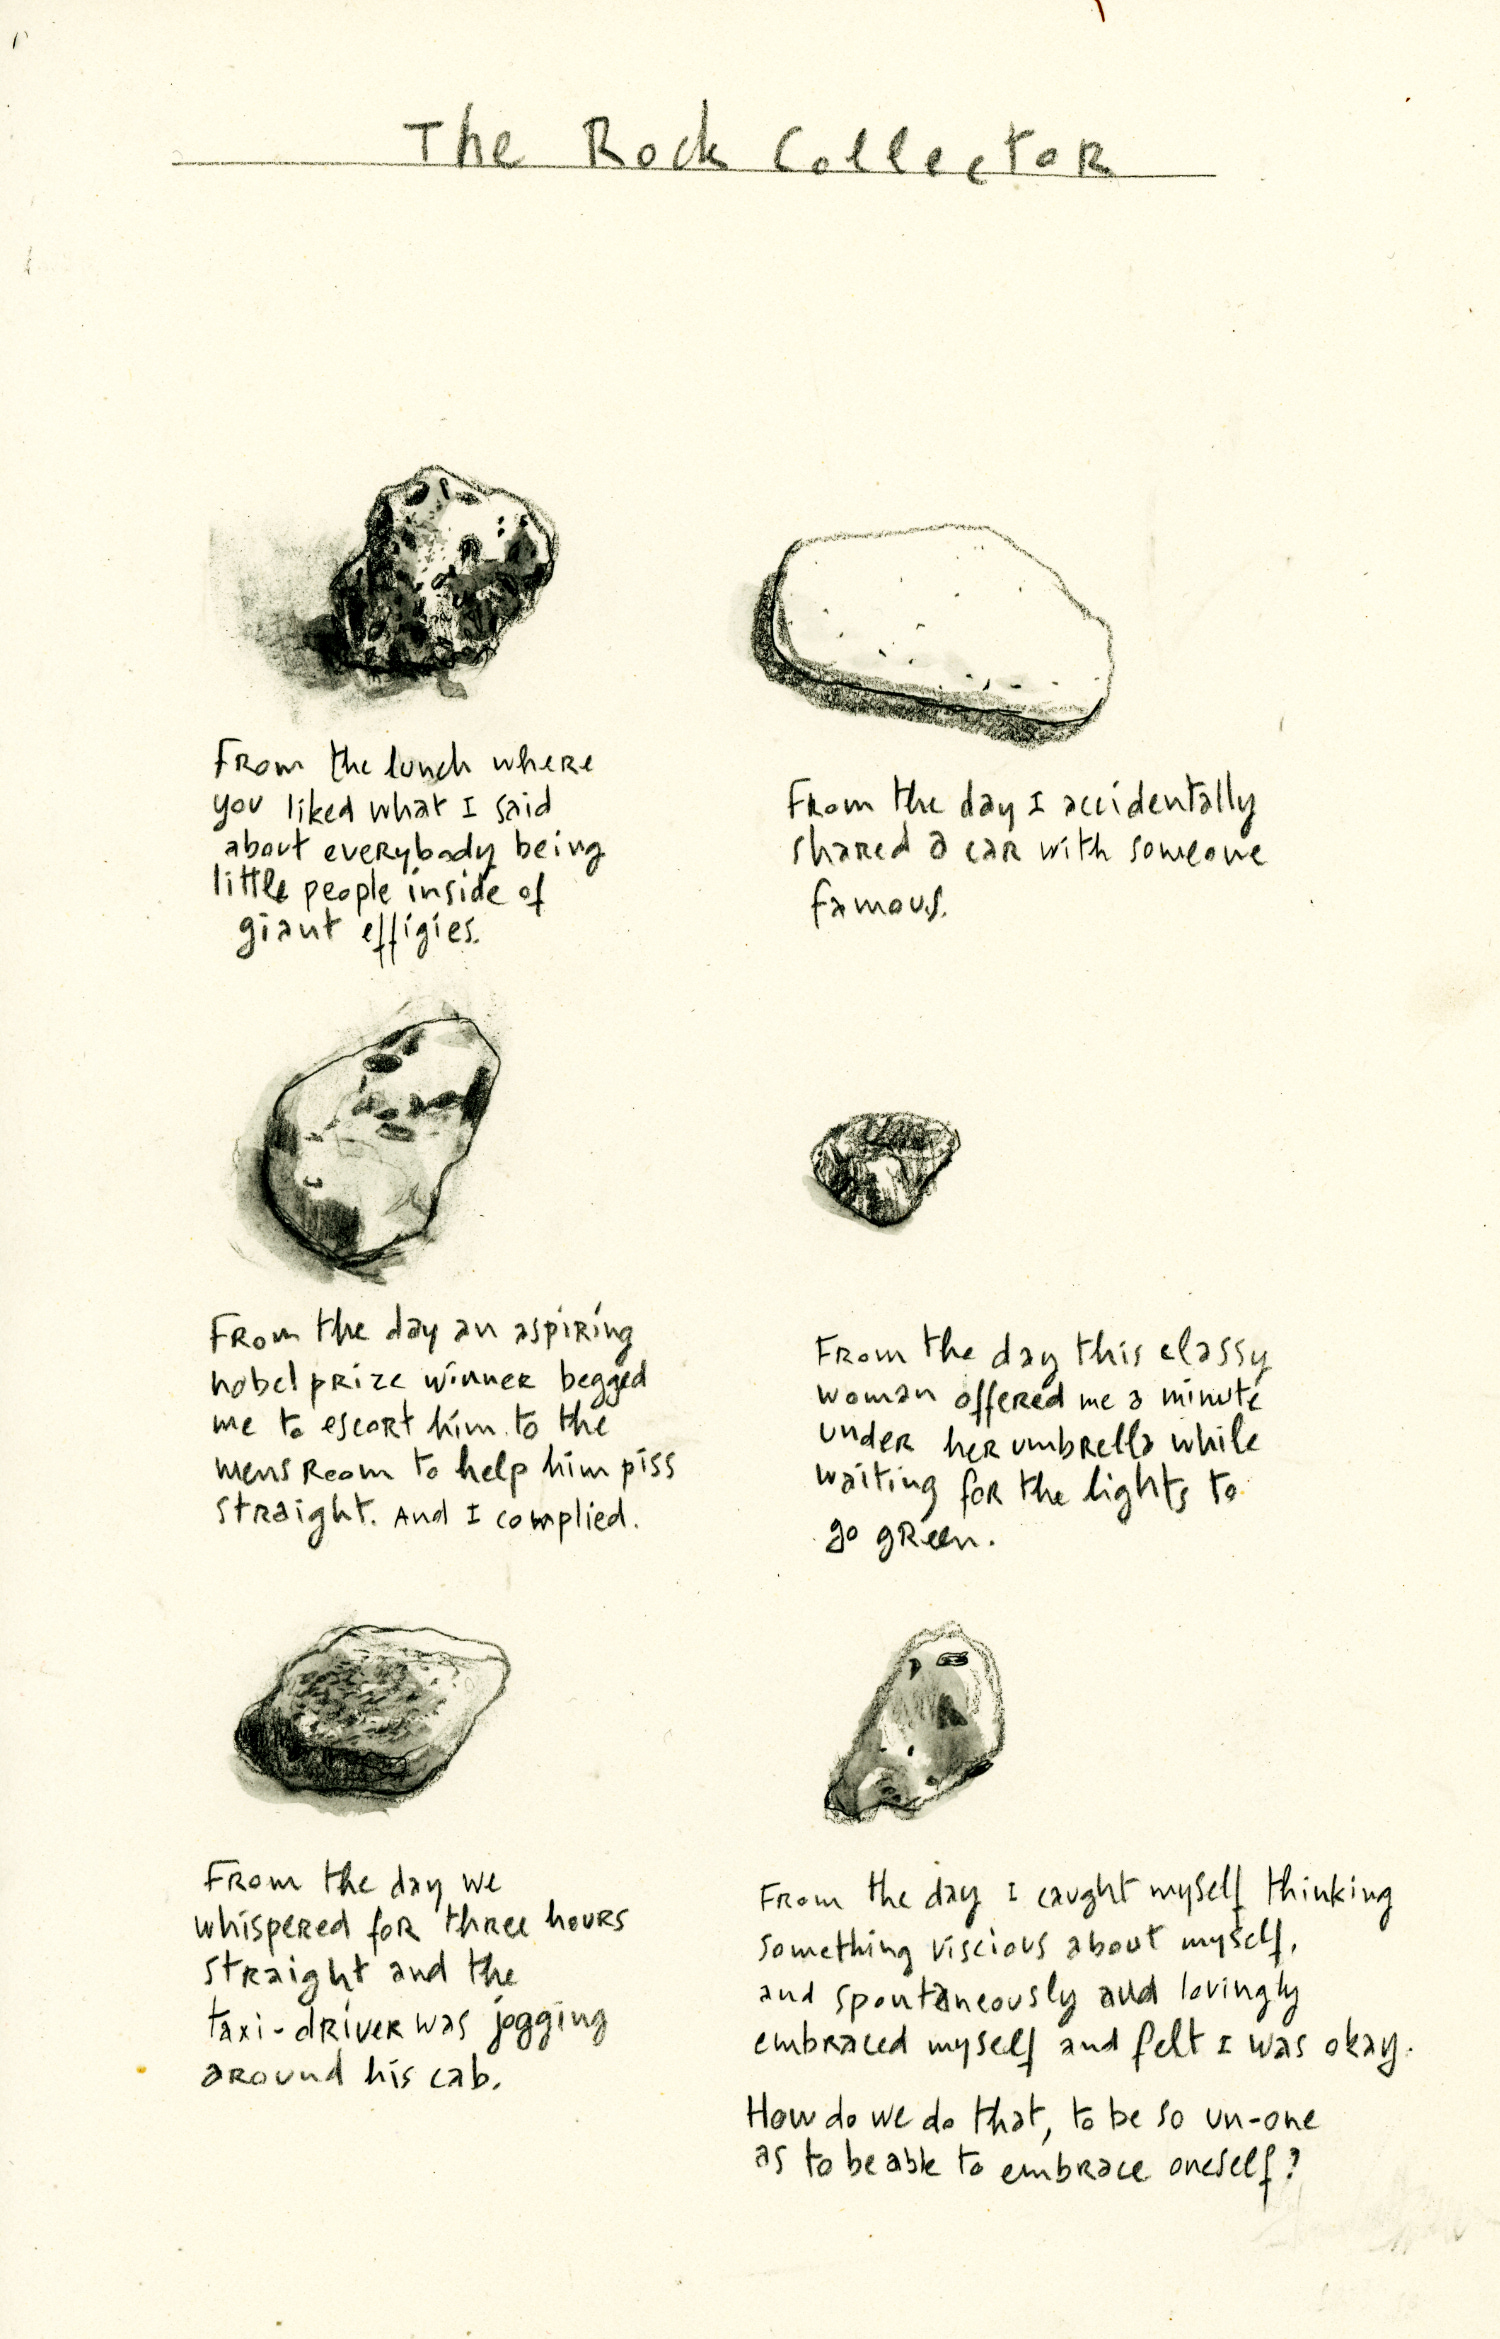 The Rock Collector
From the lunch where
you liked what I said
about everybody being
little people inside of
giant effigies.
From the day I accidentally
shared a car with someone
famous.
From the day an aspiring
nobel prize winner begged
me to escort him to the
mens room to help him piss
straight. And I complied.
From the day this classy
woman offered me a minute
under her umbrella while
waiting for the lights to
go green.
From the day we
whispered for three hours
straight and the
taxi-driver was jogging
around his cab.
From the day I caught myself thinking
something viscious about myself,
and spontaneously and lovingly
embraced myself and felt I was okay.
How do we do that, to be so un-one
as to be able to embrace oneself?